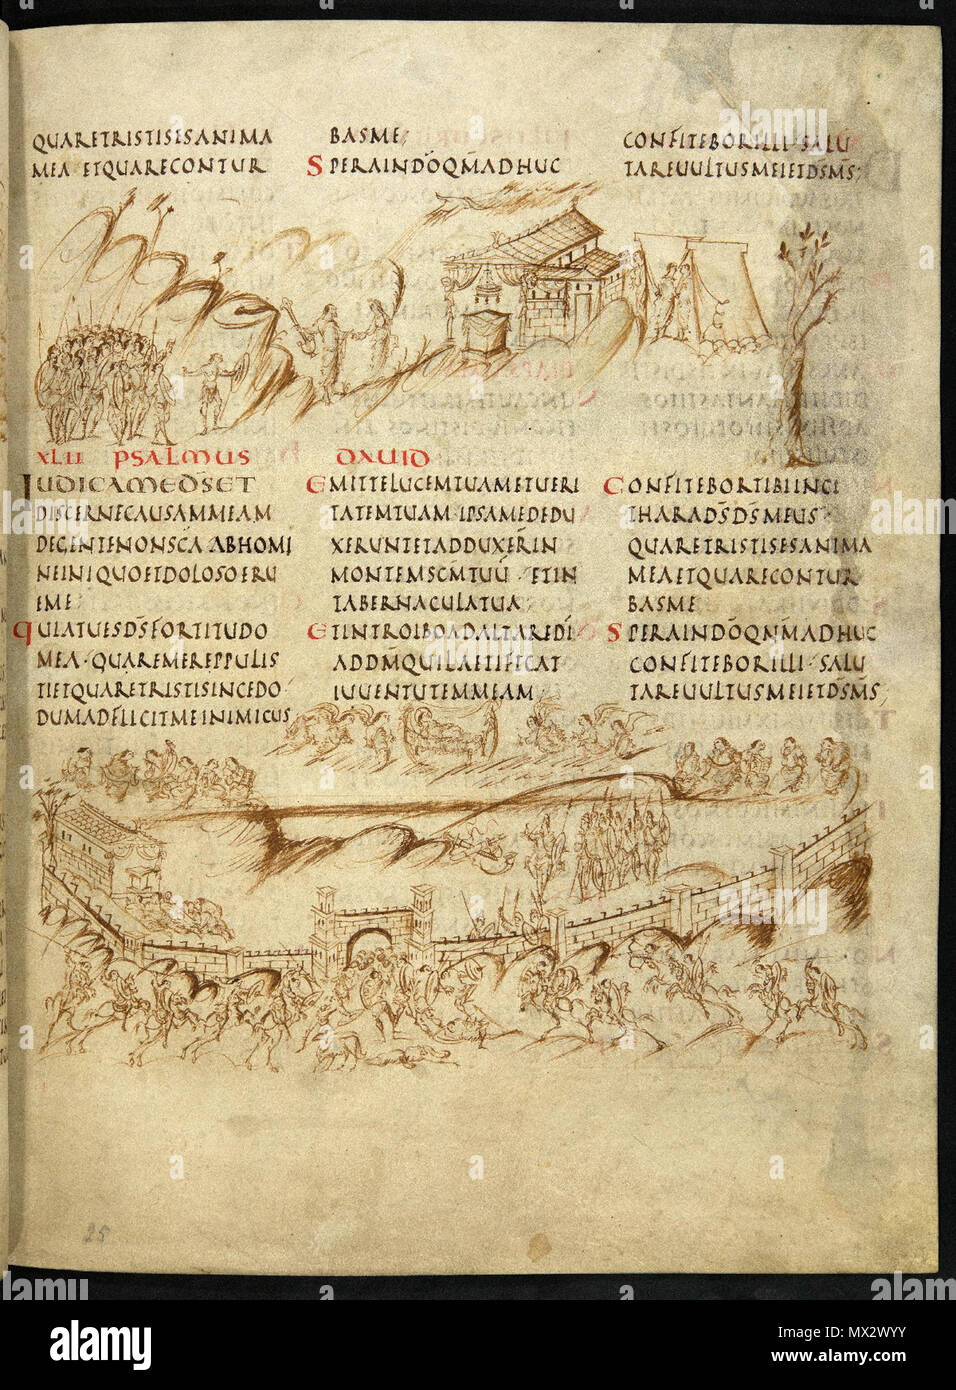 QUARETRISTISESANIMA
MEA ETQUARECONTUR
BASME;
SPERAINDŌQM̄ADHUC
CONFITEBORILLI·SALU
TAREUULTUSMEIETDS̄MS̄;
XLII PSALMUS DAUID
IUDICAMEDS̄ET
DISCERNECAUSAMMEAM
DEGENTENONSC̄A ABHOMI
NEINIQUOETDOLOSOERU
EME
QUIATUESDS̄FORTITUDO
MEA·QUAREMEREPPULIS
TIETQUARETRISTISINCEDO
DUMADFLICITMEINIMICUS
EMITTELUCEMTUAMETUERI
TATEMTUAM·IPSAMEDEDU
XERUNTETADDUXER̄IN
MONTEMSCM̄TUŪ·ETIN
TABERNACULATUA
ETINTROIBOADALTAREDĪ
ADDM̄QUILAETIFICAT
IUUENTUTEMMEAM
CONFITEBORTIBIINCI
THARADS̄DS̄MEUS
QUARETRISTISESANIMA
MEAETQUARECONTUR
BASME
SPERAINDŌQNM̄ADHUC
CONFITEBORILLI·SALU
TAREUULTUSMEIETDS̄MS̄;
25
alamy
Image ID: MX2WYY
www.alamy.com